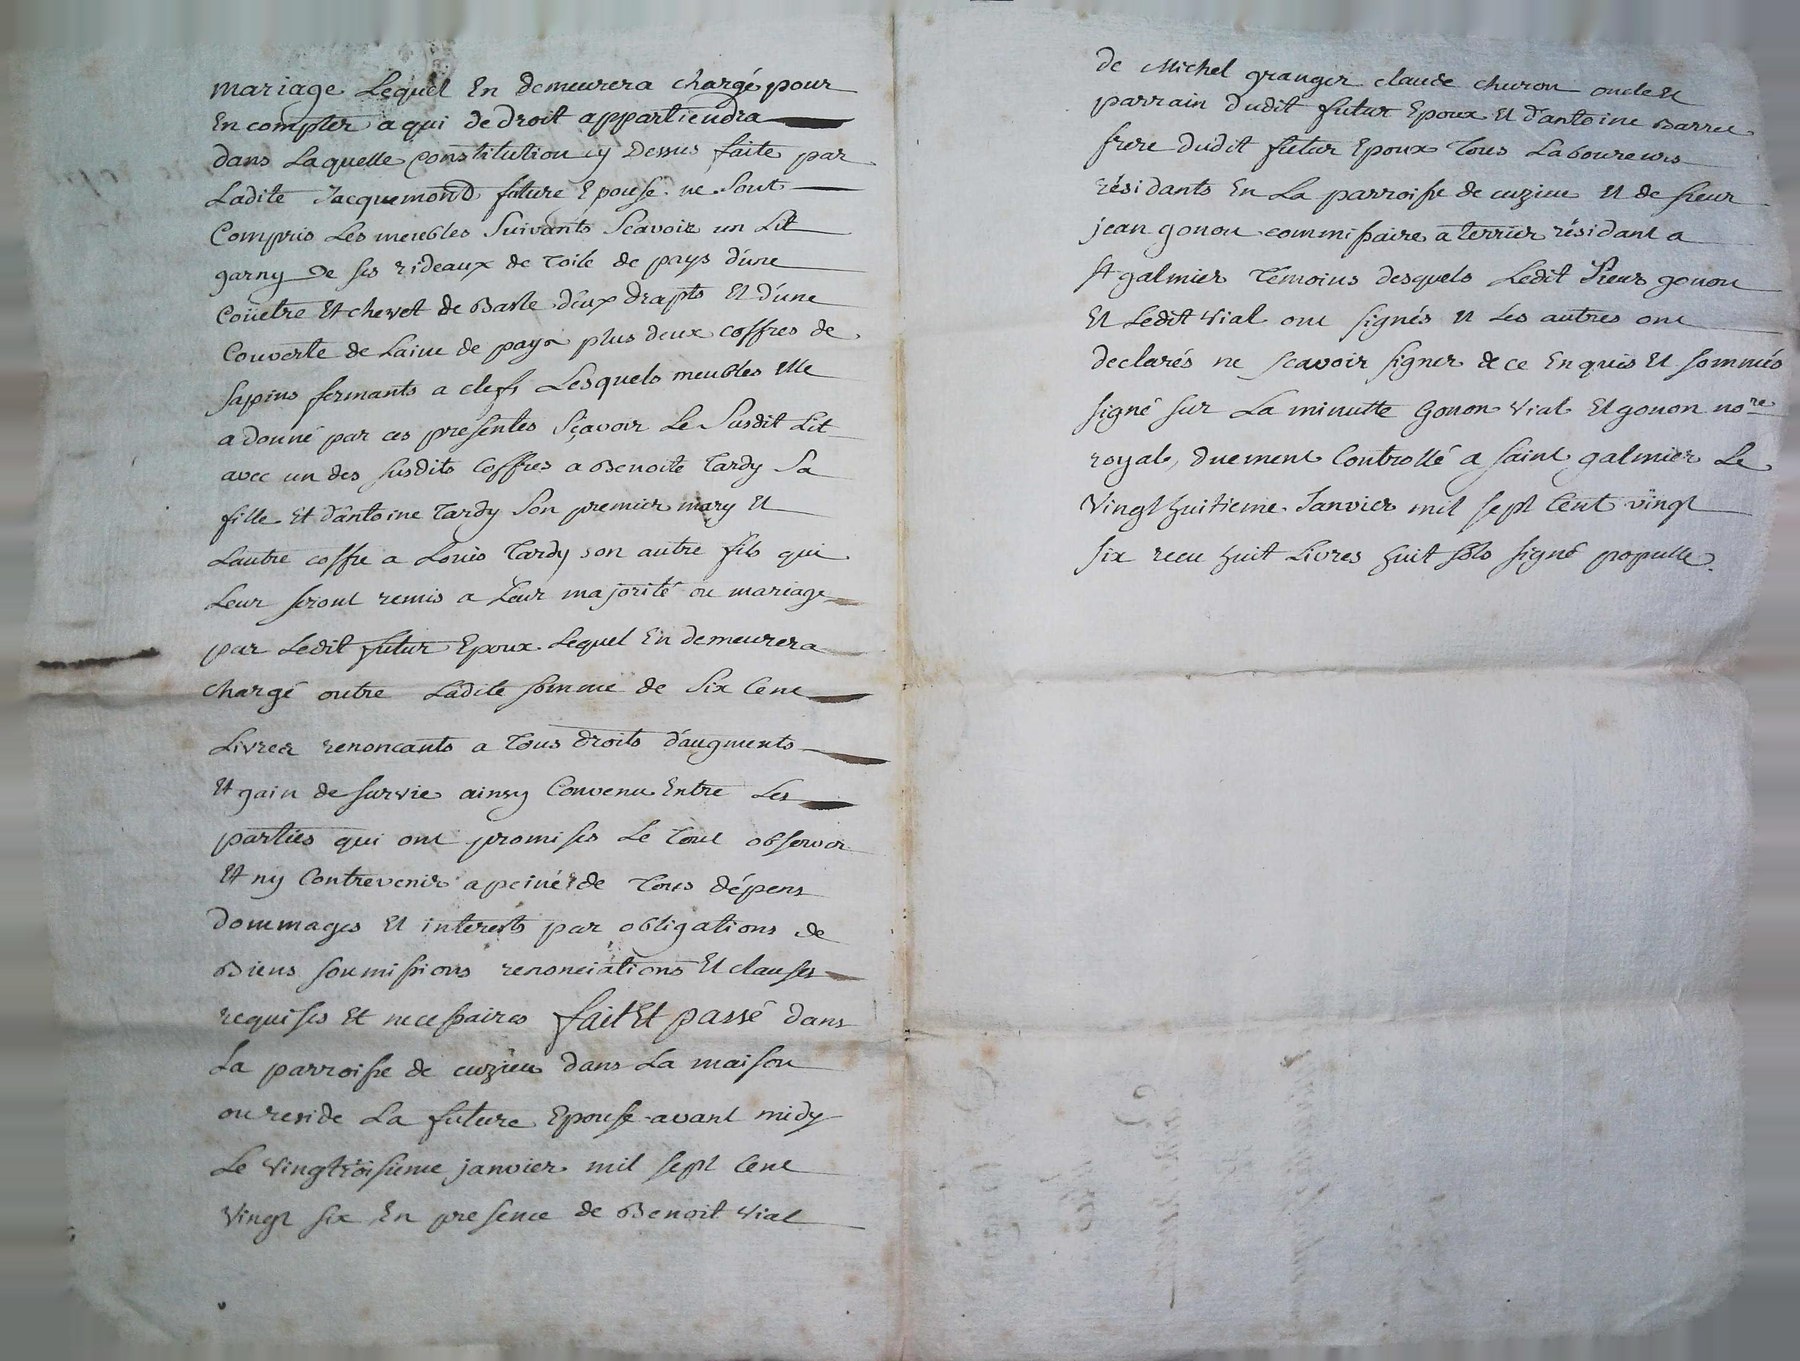 mariage Lequel En demeurera chargé pour
En compter a qui de droit appartiendra
dans Laquelle Constitution cy Dessus faite par
Ladite Jacquemond future Epouse ne sont
Compris Les meubles Suivants Scavoir un Lit
garny de ses rideaux de toile de pays d'une
Coüetre Et chevet de Basle deux drapts Et d'une
Couverte de Laine de pays plus deux coffres de
sapins fermants a clefs Lesquels meubles Elle
a donné par ces presentes Sçavoir Le Susdit Lit
avec un des susdits Coffres a Benoite Tardy Sa
fille Et d'antoine Tardy Son premier mary Et
Lautre coffre a Louis Tardy son autre fils qui
Leur seront remis a Leur majorité ou mariage
par Ledit futur Epoux Lequel En demeurera
chargé outre Ladite somme de Six Cent
Livres renoncants a Tous droits d'augments
Et gain de survie ainsy Convenu Entre Les
parties qui ont promises Le Tout observer
Et ny Contrevenir a peine de Tous dépens
dommages Et interests par obligations de
Biens soumissions renonciations Et clauses
requises Et necessaires fait Et passé dans
La parroisse de cuzieu dans La maison
ou reside La future Epouse avant midy
Le vingtroisieme janvier mil sept Cent
Vingt six En presence de Benoit Vial
de Michel granger claude churon oncle Et
parrain dudit futur Epoux Et d'antoine Barret
frere dudit futur Epoux Tous Laboureurs
résidants En La parroisse de cuzieu Et de sieur
jean gonon commissaire a terrier résidant a
st galmier Témoins desquels Ledit Sieur gonon
Et Ledit Vial ont signés Et Les autres ont
declarés ne scavoir signer de ce Enquis Et sommés
signé sur La minutte Gonon Vial Et gonon nore
royal, duement Controllé a saint galmier Le
Vingt huitieme Janvier mil sept Cent vingt
six recu huit Livres huit sols signé populle.